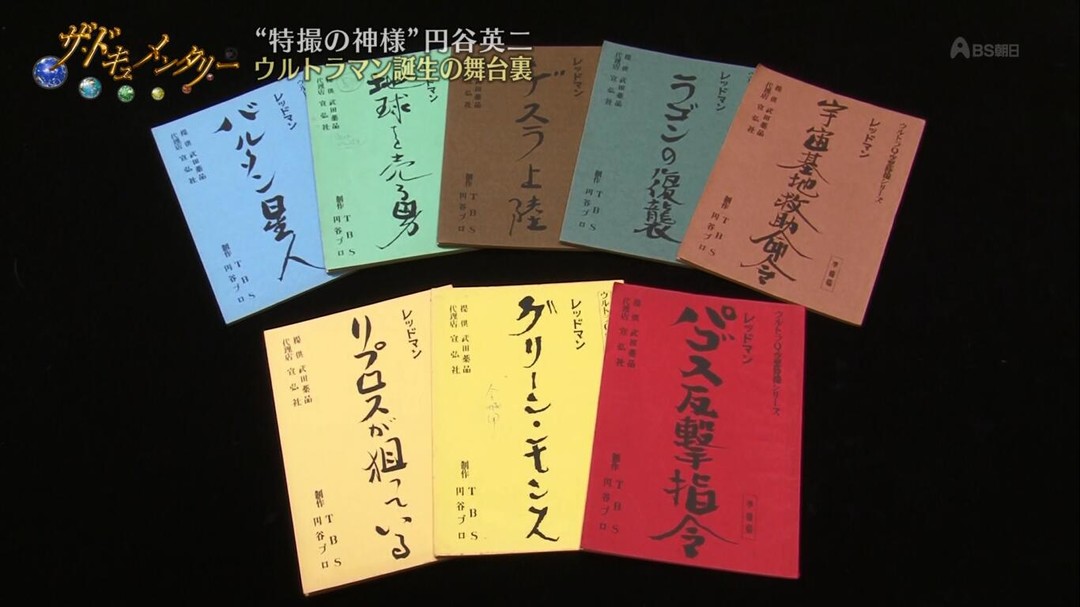 ザ・ドキュメンタリー
“特撮の神様”円谷英二
ウルトラマン誕生の舞台裏
BS朝日
提供 武田薬品
代理店 宣弘社
バルタン星人
レッドマン
創作 TBS
円谷プロ
武田薬品
宣弘社
地球を売る男
レッドマン
創作 TBS
円谷プロ
提供 武田薬品
代理店 宣弘社
ゲスラ上陸
レッドマン
創作 TBS
円谷プロ
提供 武田薬品
代理店 宣弘社
ラゴンの復襲
レッドマン
創作 TBS
円谷プロ
宇宙基地救助命令
レッドマン
シリーズ
準備稿
提供 武田薬品
代理店 宣弘社
リプロスが狙っている
レッドマン
創作 TBS
円谷プロ
提供 武田薬品
代理店 宣弘社
グリーン・モンス
レッドマン
創作 TBS
円谷プロ
提供 武田薬品
代理店 宣弘社
パゴス反撃指令
レッドマン
シリーズ
準備稿
創作 TBS
円谷プロ